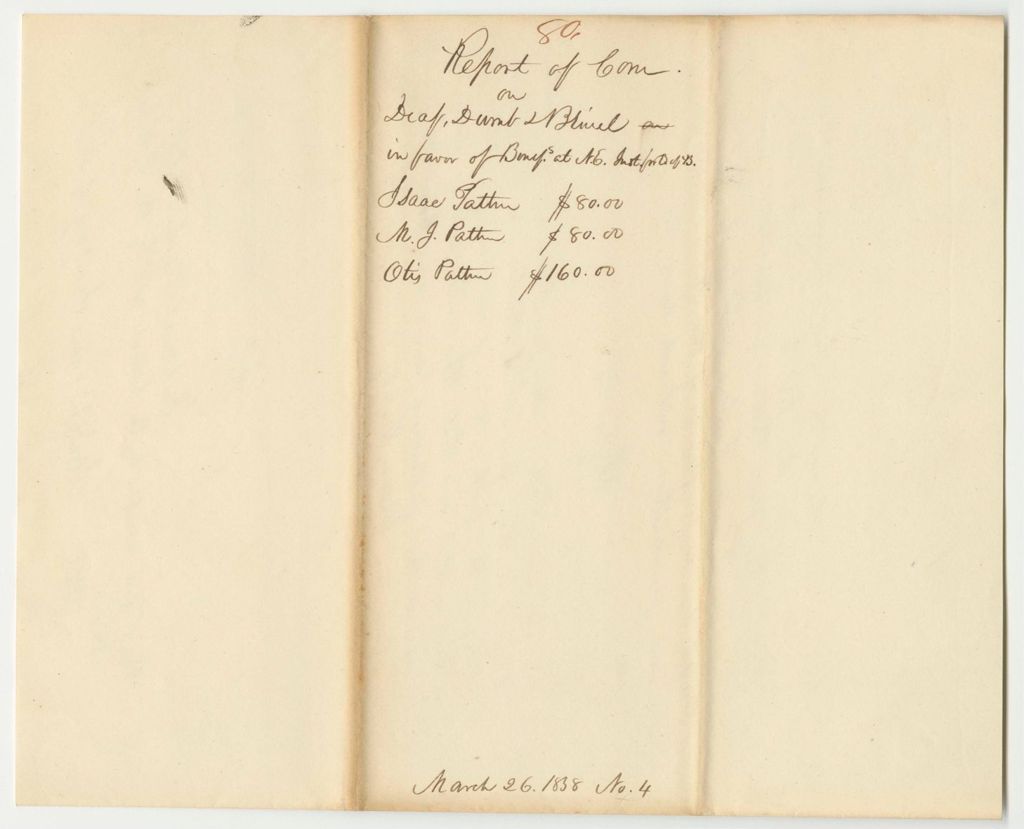 80.
Report of Com.
on
Deaf, Dumb & Blind
in favor of Benefs. at N.E. Inst. for Ed of B.
Isaac Patten $80.00
M. J. Patten $80.00
Otis Patten $160.00
March 26. 1838 No. 4